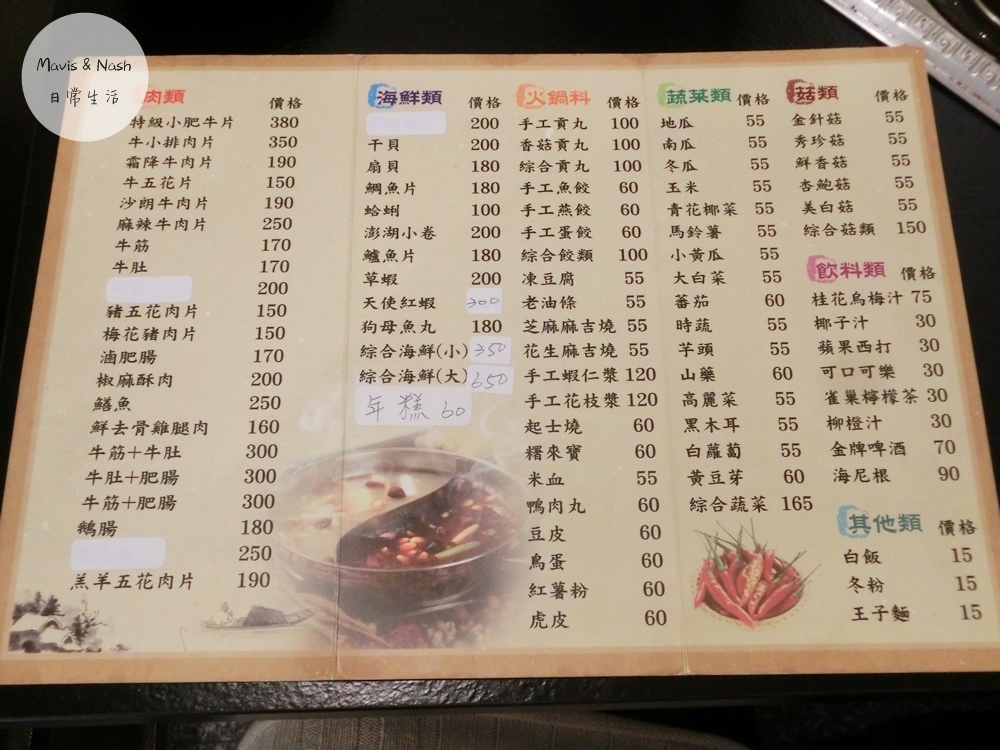 Mavis & Nash
日常生活
肉類 價格
特級小肥牛片 380
牛小排肉片 350
霜降牛肉片 190
牛五花片 150
沙朗牛肉片 190
麻辣牛肉片 250
牛筋 170
牛肚 170
200
豬五花肉片 150
梅花豬肉片 150
滷肥腸 170
椒麻酥肉 200
鱔魚 250
鮮去骨雞腿肉 160
牛筋+牛肚 300
牛肚+肥腸 300
牛筋+肥腸 300
鵝腸 180
250
羔羊五花肉片 190
海鮮類 價格
200
干貝 200
扇貝 180
鯛魚片 180
蛤蜊 100
澎湖小卷 200
鱸魚片 180
草蝦 200
天使紅蝦 300
狗母魚丸 180
綜合海鮮(小) 350
綜合海鮮(大) 650
年糕 60
火鍋料 價格
手工貢丸 100
香菇貢丸 100
綜合貢丸 100
手工魚餃 60
手工燕餃 60
手工蛋餃 60
綜合餃類 100
凍豆腐 55
老油條 55
芝麻麻吉燒 55
花生麻吉燒 55
手工蝦仁漿 120
手工花枝漿 120
起士燒 60
糬來寶 60
米血 55
鴨肉丸 60
豆皮 60
鳥蛋 60
紅薯粉 60
虎皮 60
蔬菜類 價格
地瓜 55
南瓜 55
冬瓜 55
玉米 55
青花椰菜 55
馬鈴薯 55
小黃瓜 55
大白菜 55
蕃茄 60
時蔬 55
芋頭 55
山藥 60
高麗菜 55
黑木耳 55
白蘿蔔 55
黃豆芽 60
綜合蔬菜 165
菇類 價格
金針菇 55
秀珍菇 55
鮮香菇 55
杏鮑菇 55
美白菇 55
綜合菇類 150
飲料類 價格
桂花烏梅汁 75
椰子汁 30
蘋果西打 30
可口可樂 30
雀巢檸檬茶 30
柳橙汁 30
金牌啤酒 70
海尼根 90
其他類 價格
白飯 15
冬粉 15
王子麵 15